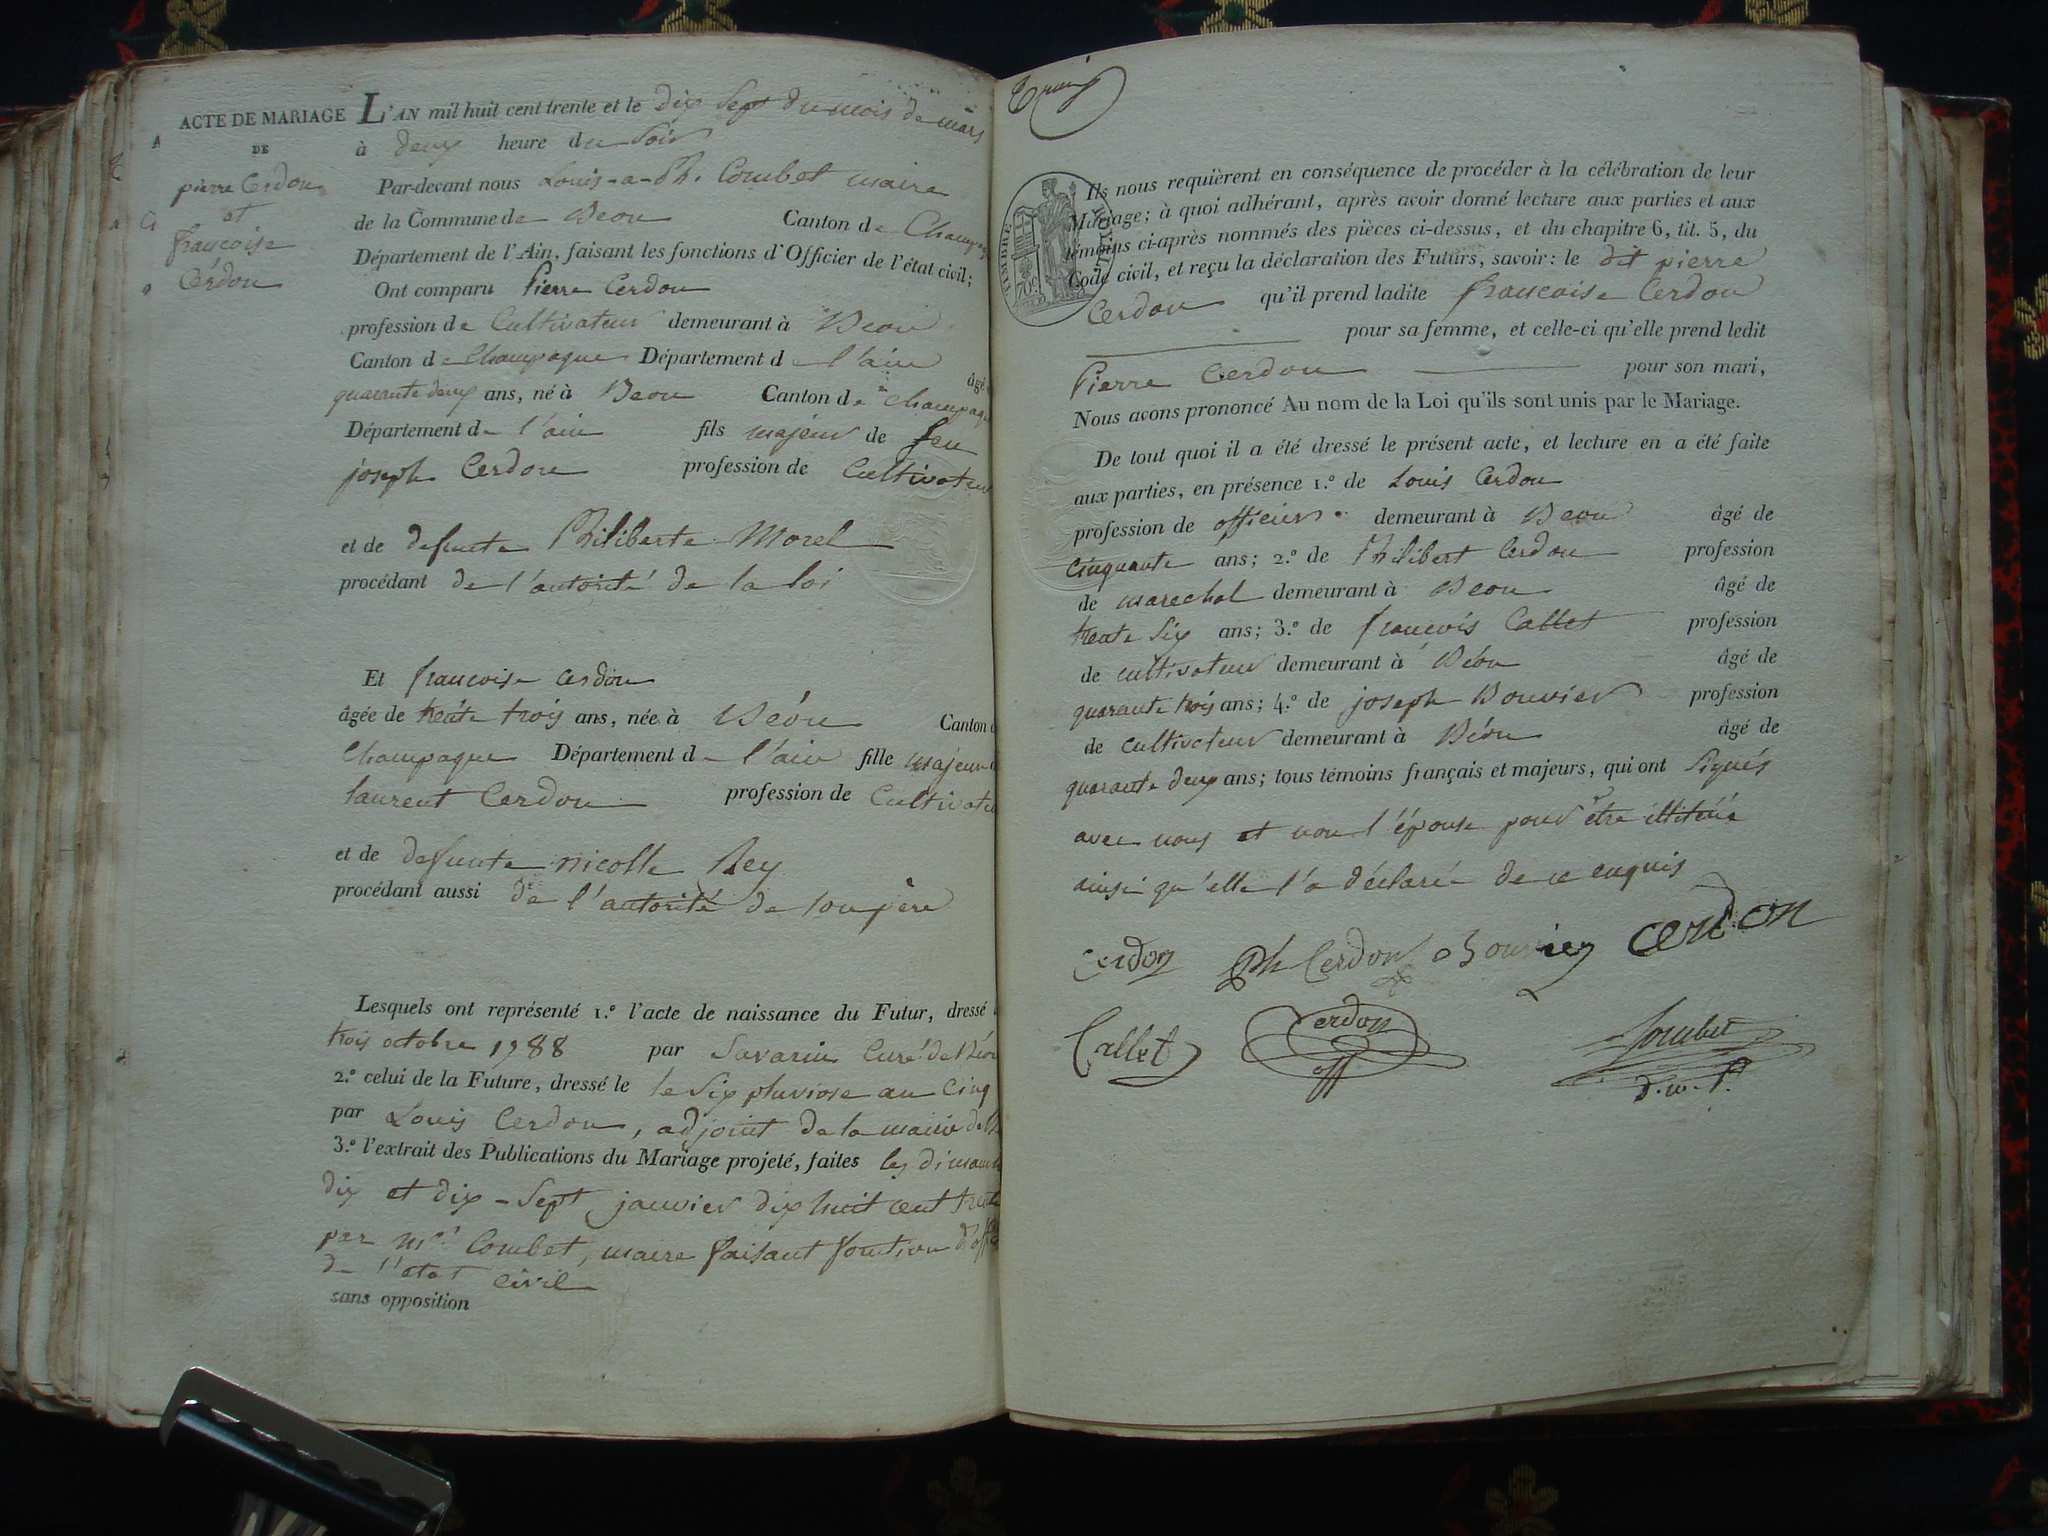 ACTE DE MARIAGE
DE
pierre Cerdon
et
francoise
Cerdon
L'AN mil huit cent trente et le dix Sept du mois de mars
à deux heure du Soir
Par-devant nous Louis-a-Ph. Combet maire
de la Commune de Béon Canton de Champag
Département de l'Ain, faisant les fonctions d'Officier de l'état civil;
Ont comparu Pierre Cerdon
profession de Cultivateur demeurant à Béon
Canton de Champagne Département de l'ain
âgé
quarante deux ans, né à Béon Canton de Champagne
Département de l'ain fils majeur de feu
joseph Cerdon profession de Cultivateur
et de defunte Philiberte Morel
procédant de l'autorité de la loi
Et francoise Cerdon
âgée de trente trois ans, née à Béon Canton d
Champagne Département de l'ain fille majeure
laurent Cerdon profession de Cultivateu
et de defunte nicolle Rey
procédant aussi de l'autorité de son père
Lesquels ont représenté 1.º l'acte de naissance du Futur, dressé
trois octobre 1788 par Savarin Curé de Béon
2.º celui de la Future, dressé le le Six pluviose an Cinq
par Louis Cerdon, adjoint de la mairie de
3.º l'extrait des Publications du Mariage projeté, faites les dimanch
dix et dix-Sept janvier dix huit cent trente
par Mr. Combet, maire faisant fonction d'off
de l'etat civil
sans opposition
Ils nous requièrent en conséquence de procéder à la célébration de leur
Mariage; à quoi adhérant, après avoir donné lecture aux parties et aux
témoins ci-après nommés des pièces ci-dessus, et du chapitre 6, tit. 5, du
Code civil, et reçu la déclaration des Futurs, savoir: le dit pierre
Cerdon qu'il prend ladite francoise Cerdon
pour sa femme, et celle-ci qu'elle prend ledit
Pierre Cerdon pour son mari,
Nous avons prononcé Au nom de la Loi qu'ils sont unis par le Mariage.
De tout quoi il a été dressé le présent acte, et lecture en a été faite
aux parties, en présence 1.º de Louis Cerdon
profession de officier demeurant à Béon âgé de
cinquante ans; 2.º de Philibert Cerdon profession
de marechal demeurant à Béon âgé de
trente Six ans; 3.º de francois Callet profession
de cultivateur demeurant à Béon âgé de
quarante trois ans; 4.º de joseph Bouvier profession
de cultivateur demeurant à Béon âgé de
quarante deux ans; tous témoins français et majeurs, qui ont Signés
avec nous et non l'épouse pour être illitérée
ainsi qu'elle l'a déclaré de ce enquis
Cerdon Ph Cerdon Bouvier CERDON
Callet Cerdon off Combet
TIMBRE ROYAL